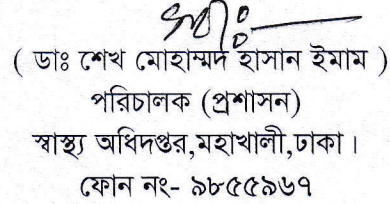 ( ডাঃ শেখ মোহাম্মদ হাসান ইমাম )
পরিচালক (প্রশাসন)
স্বাস্থ্য অধিদপ্তর,মহাখালী,ঢাকা।
ফোন নং- ৯৮৫৫৯৬৭